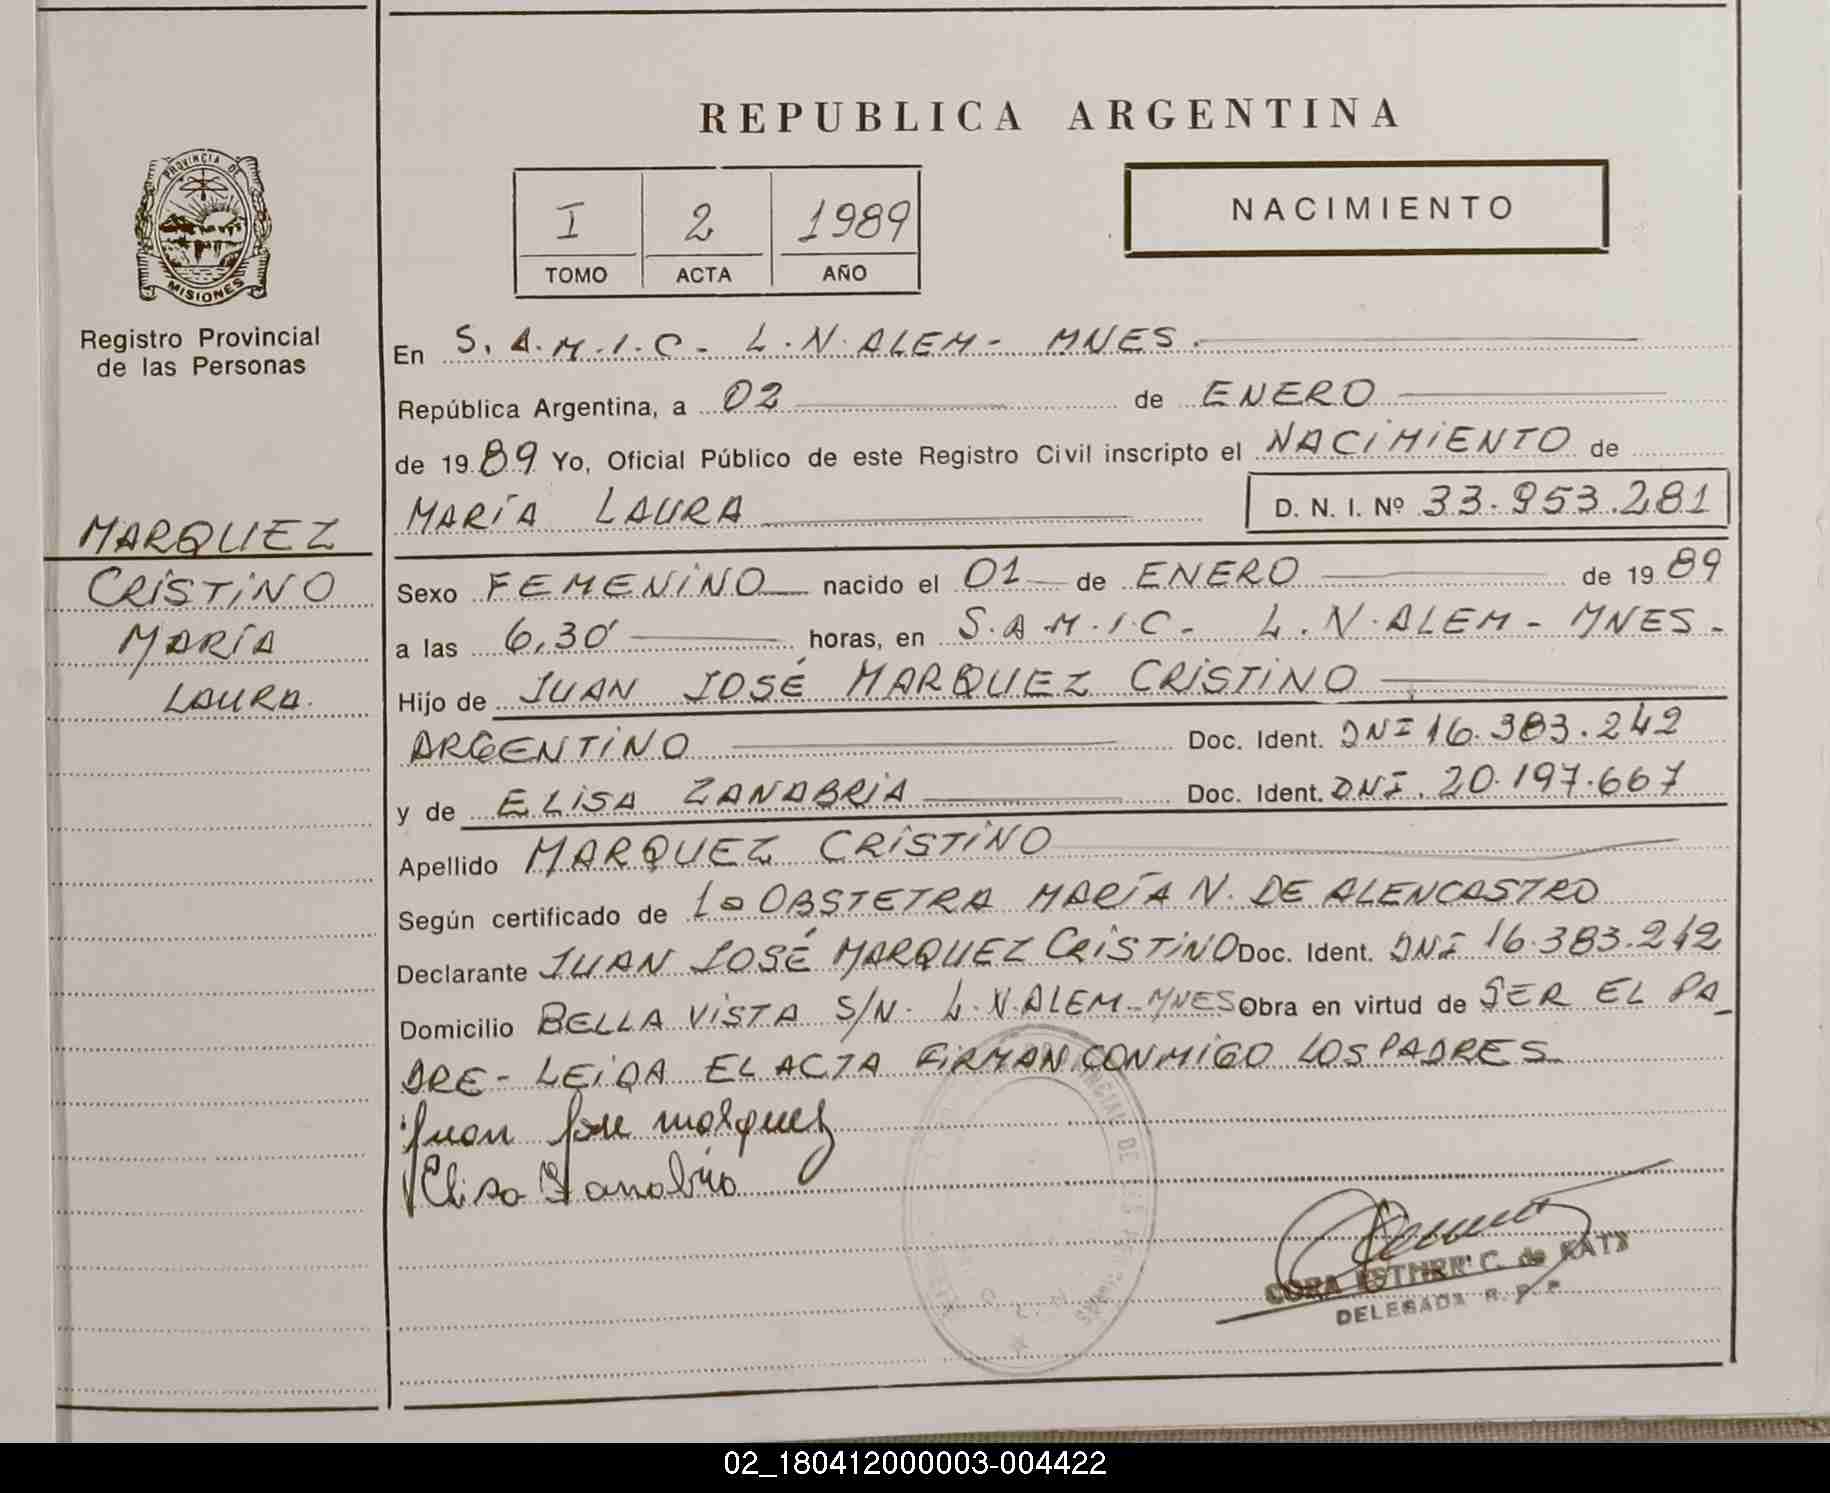 REPUBLICA ARGENTINA
PROVINCIA DE
MISIONES
Registro Provincial
de las Personas
I 2 1989
TOMO ACTA AÑO
NACIMIENTO
En S.A.M.I.C. L.N.ALEM- MNES.
República Argentina, a 02 de ENERO
de 1989 Yo, Oficial Público de este Registro Civil inscripto el NACIMIENTO de
MARÍA LAURA D. N. I. Nº 33.953.281
MARQUEZ
CRISTINO
MARÍA
LAURA.
Sexo FEMENINO nacido el 01 de ENERO de 1989
a las 6,30' horas, en S.A.M.I.C- L.N.ALEM - MNES-
Hijo de JUAN JOSÉ MARQUEZ CRISTINO
ARGENTINO Doc. Ident. DNI 16.383.242
y de ELISA ZANABRIA Doc. Ident. DNI. 20.197.667
Apellido MARQUEZ CRISTINO
Según certificado de La OBSTETRA MARÍA N. DE ALENCASTRO
Declarante JUAN JOSÉ MARQUEZ CRISTINO Doc. Ident. DNI 16.383.242
Domicilio BELLA VISTA S/N. L.N.ALEM-MNES Obra en virtud de SER EL PA_
DRE- LEIDA EL ACTA FIRMAN CONMIGO LOS PADRES
Juan Jose Marquez
Elisa Zanabria
CORA ESTHER C. de KATZ
DELEGADA R. P. P.
02_180412000003-004422